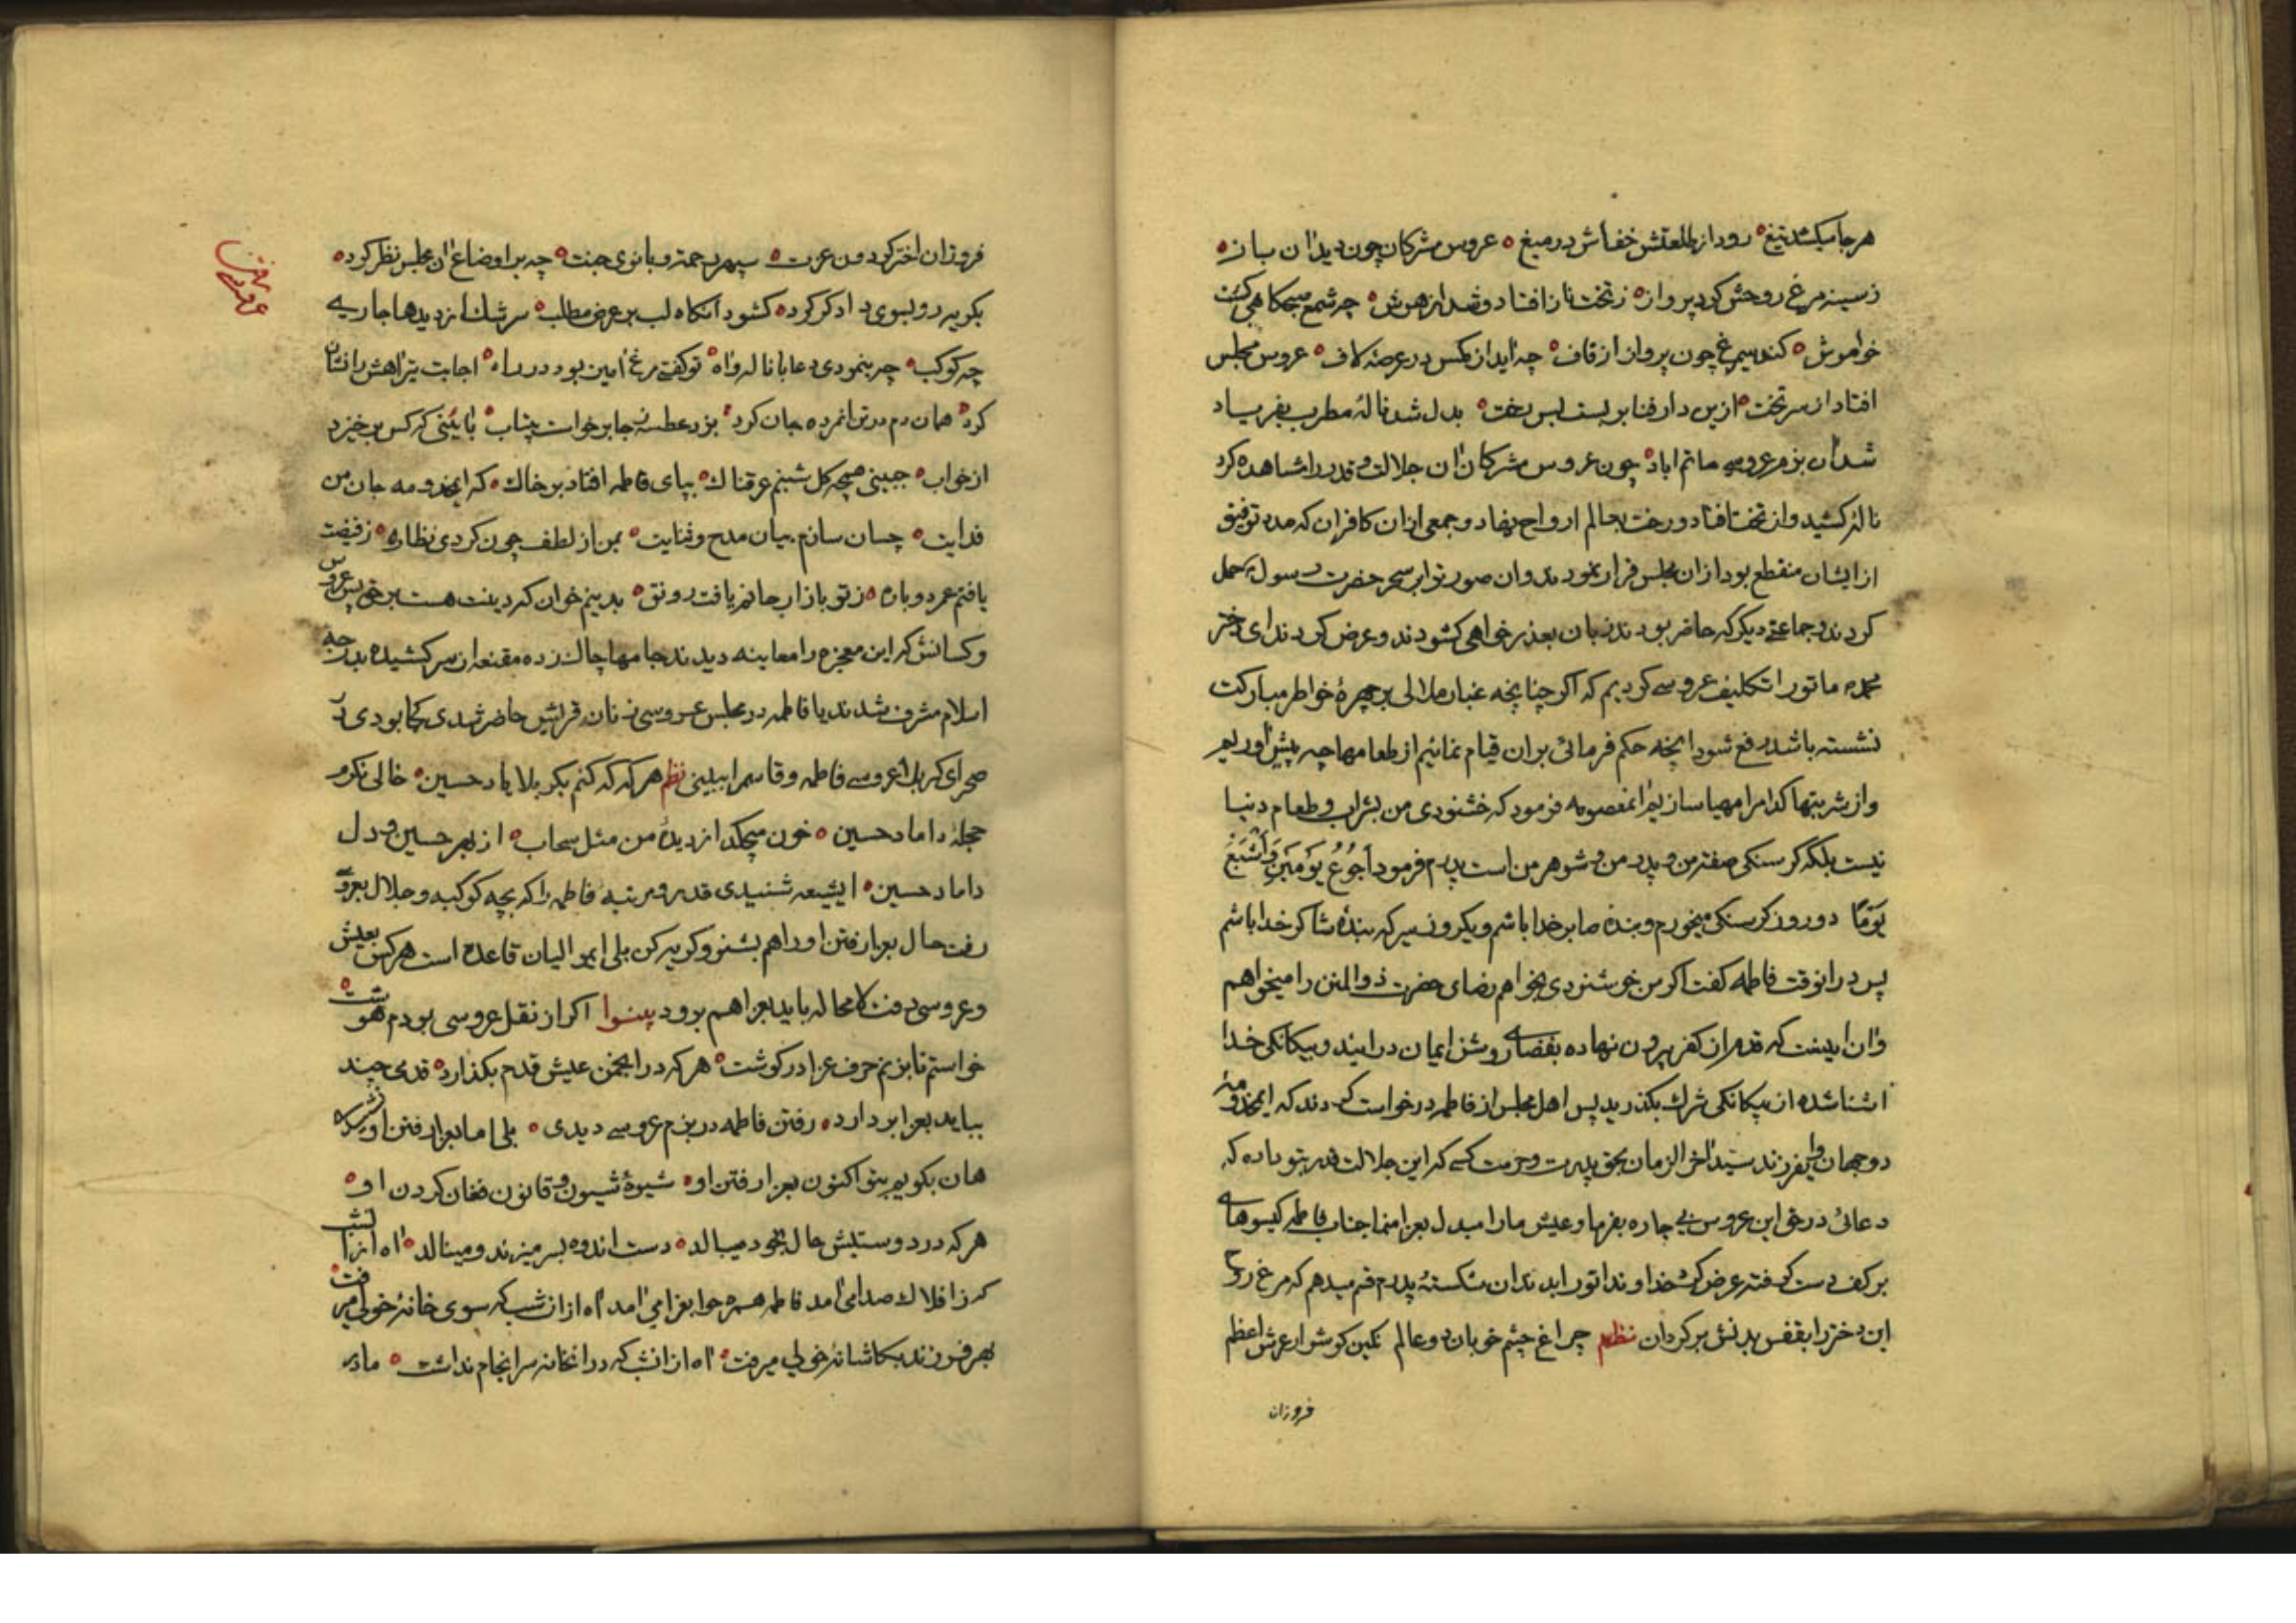 هرجا میکشد تیغ ه رود از طلعتش خفاش در میغ ه عروس مشرکان چون دید ان باز ه
ز سینه مرغ روحش کرد پرواز ه ز تخت ناز افتاد و شد از هوش ه چه شمع صبحکاهی کشت
خواموش ه کند سیمرغ چون پرواز از قاف ه چه اید از مکس در عرصه کاف ه عروس مجلس
افتاد از سر تخت ه ازین دار فنا بر بست پس رخت ه بدل شد نالهٔ مطرب بفریاد
شد آن بزم عروسے ماتم اباد ه چون عروس مشرکان ان جلالت و قدر را مشاهده کرد
نالهٔ کشید و از تخت افتاد و رخت بعالم ارواح نهاد و جمعی ازان کافران که مدد توفیق
از ایشان منقطع بود ازان مجلس فرار نمودند و ان صورت را بر سحر حضرت رسول ص حمل
کردند و جماعتے دیکر که حاضر بودند زبان بعذر خواهی کشودند و عرض کردند ای دختر
محمد ص ما تو را تکلیف عروسے کردیم که اکر چنانچه غبار ملالی بر چهرهٔ خواطر مبارکت
نشسته باشد رفع شود انچه حکم فرمائی بران قیام نمائیم از طعامها چه پیش اوریم
و از شربتها کدام را مهیا سازیم ان معصومه فرمود که خشنودی من بشراب و طعام دنیا
نیست بلکه کرسنکی صفت من و پدر من و شوهر من است پدرم فرمود اَجُوعُ یَومَینِ وَاَشبَعُ
یَومًا دو روز کرسنکی میخورم و بندهٔ صابر خدا باشم و یکروز سیر که بندهٔ شاکر خدا باشم
پس در انوقت فاطمه کفت اکر من خوشنودی بخواهم رضای حضرت ذوالمنن را میخواهم
و ان اینست که قدم از کفر بیرون نهاده بفضاے روشن ایمان در ایند و بیکانکی خدا
اشنا شده از بیکانکی شرک بکذرید پس اهل مجلس از فاطمه درخواست کردند که ایمخدومهٔ
دو جهان و ایفرزند سید اخر الزمان بحق پدرت و حرمت کسے که این جلالت قدر بتو داده که
دعائی در حق این عروس بے چاره بفرما و عیش ما را مبدل بعزا منما جناب فاطمه کیسوهاے
بر کف دست کرفته عرض کرد خداوندا تو را بدندان شکستهٔ پدرم قسم میدهم که مرغ روح
این دختر را بقفس بدنش بر کردان نظم چراغ چشم خوبان دو عالم نکین کوشوار عرش اعظم
فروزان
فروزان اختر کردون عزت ه سپهر رحمت و بانوی جنت ه چه بر اوضاع ان مجلس نظر کرد ه
بکریه رو بسوی دادکر کرد ه کشود انکاه لب بر عرض مطلب ه سرشک از دیدها جاریے
چه کوکب ه چه بنمودی دعا با ناله و اه ه تو کفتے مرغ امین بود در راه ه اجابت تیر اهش را نشان
کرد ه همان دم در تن انمرده جان کرد ه بزد عطسه ز جا برخواست بیتاب ه بائینی که کس برخیزد
از خواب ه جبینی همچه کل شبنم عرقناک ه بپای فاطمه افتاد بر خاک ه که ایمخدومه جان من
فدایت ه چسان سازم بیان مدح و ثنایت ه بمن از لطف چون کردی نظاره ه ز فیضت
یافتم عمر دوباره ه ز تو بازار جانم یافت رونق ه بدینم خوان که دینت هست بر حق پس عروس
و کسانش که این معجزه را معاینه دیدند جامها چاک زده مقنعه از سر کشیده بدرجه
اسلام مشرف شدند یا فاطمه در مجلس عروسی زنان قریش حاضر شدی کجا بودی در
صحرای کربلا عروسے فاطمه و قاسم را ببینی نظم هر که که کنم بکربلا یاد حسین ه خالی نکرم
حجلهٔ داماد حسین ه خون میچکد از دیدهٔ من مثل سحاب ه از بهر حسین و دل
داماد حسین ه ایشیعه شنیدی قدر و مرتبه فاطمه را که بچه کوکبه و جلال بعروسی
رفت حال بعزا رفتن او را هم بشنو و کریه کن بلی ایموالیان قاعده است هر کس بعیش
و عروسی رفت لا محاله باید بعزا هم برود بینوا اکر از نقل عروسی بودم هوشت ه
خواستم تا بزنم حرف عزا در کوشت ه هر که در انجمن عیش قدم بکذارد ه قدمی چند
بباید بعزا بردارد ه رفتن فاطمه در بزم عروسے دیدی ه بلی اما بعزا رفتن او نشنیدی
هان بکویم بتو اکنون بعزا رفتن او ه شیوهٔ شیون و قانون فغان کردن او ه
هر که در دوستیش حال بخود میبالد ه دست اندوه بسر میزند و مینالد ه اه از انشب
که ز افلاک صدا می امد فاطمه همره حوا بعزا می امد اه از ان شب که سوی خانهٔ خولی میرفت ه
بهر فرزند بکاشانهٔ خولی میرفت ه اه از انشب که در انخانه سرانجام نداشت ه مادر